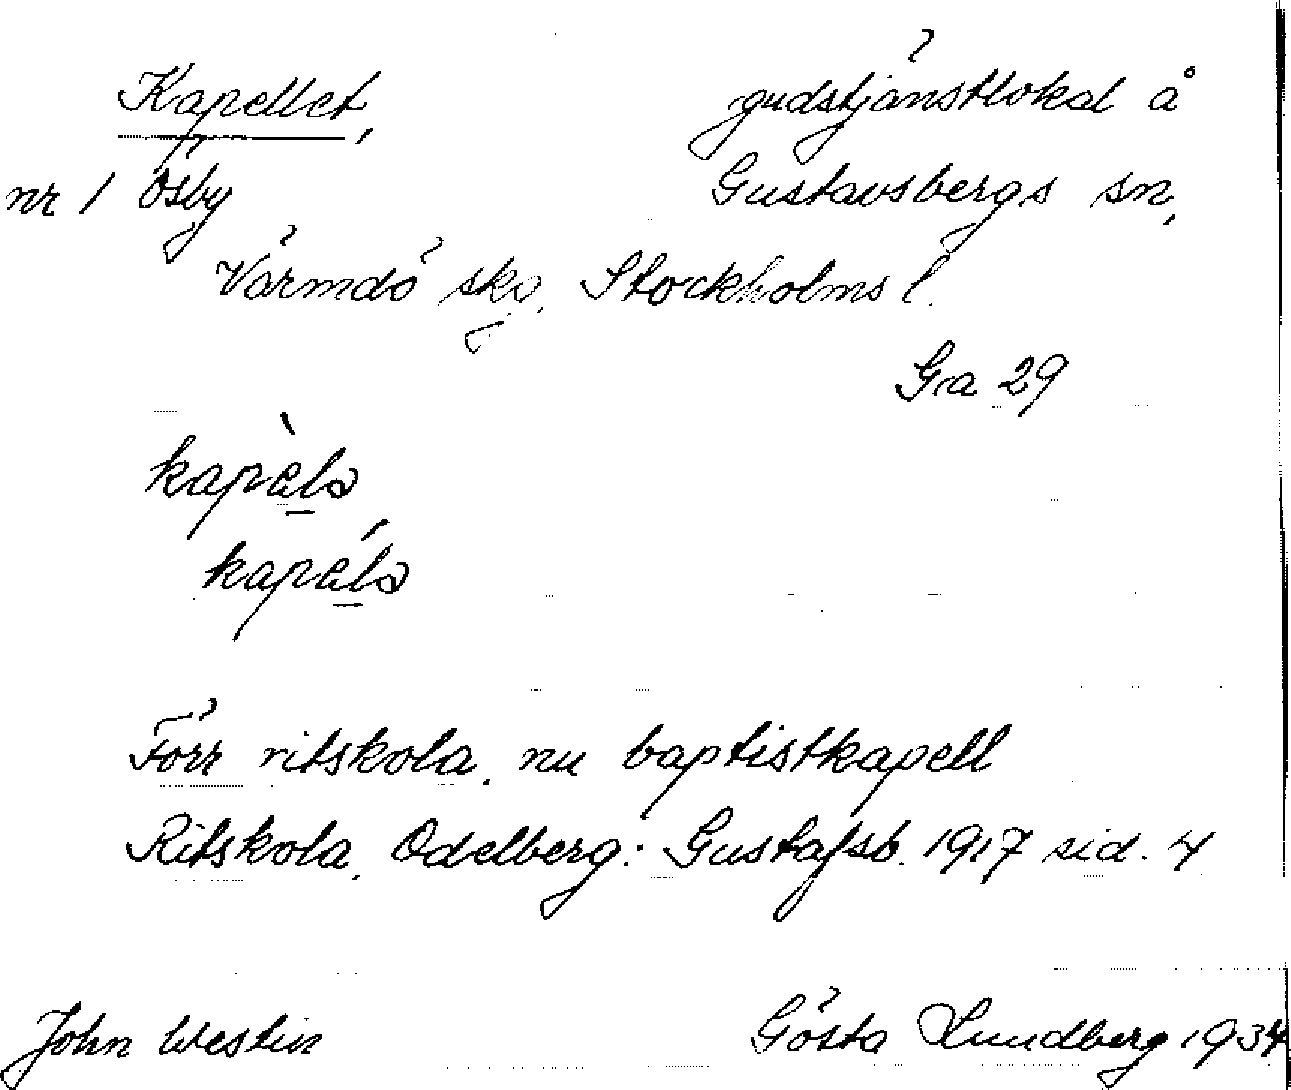 Kapellet, gudstjänstlokal å
nr 1 Ösby Gustavsbergs sn,
Värmdö skg, Stockholms l.
Ga 29
kapèlə
kapélə
Förr ritskola, nu baptistkapell
Ritskola, Odelberg: Gustafsb. 1917 sid. 4
John Westin Gösta Lundberg 1934